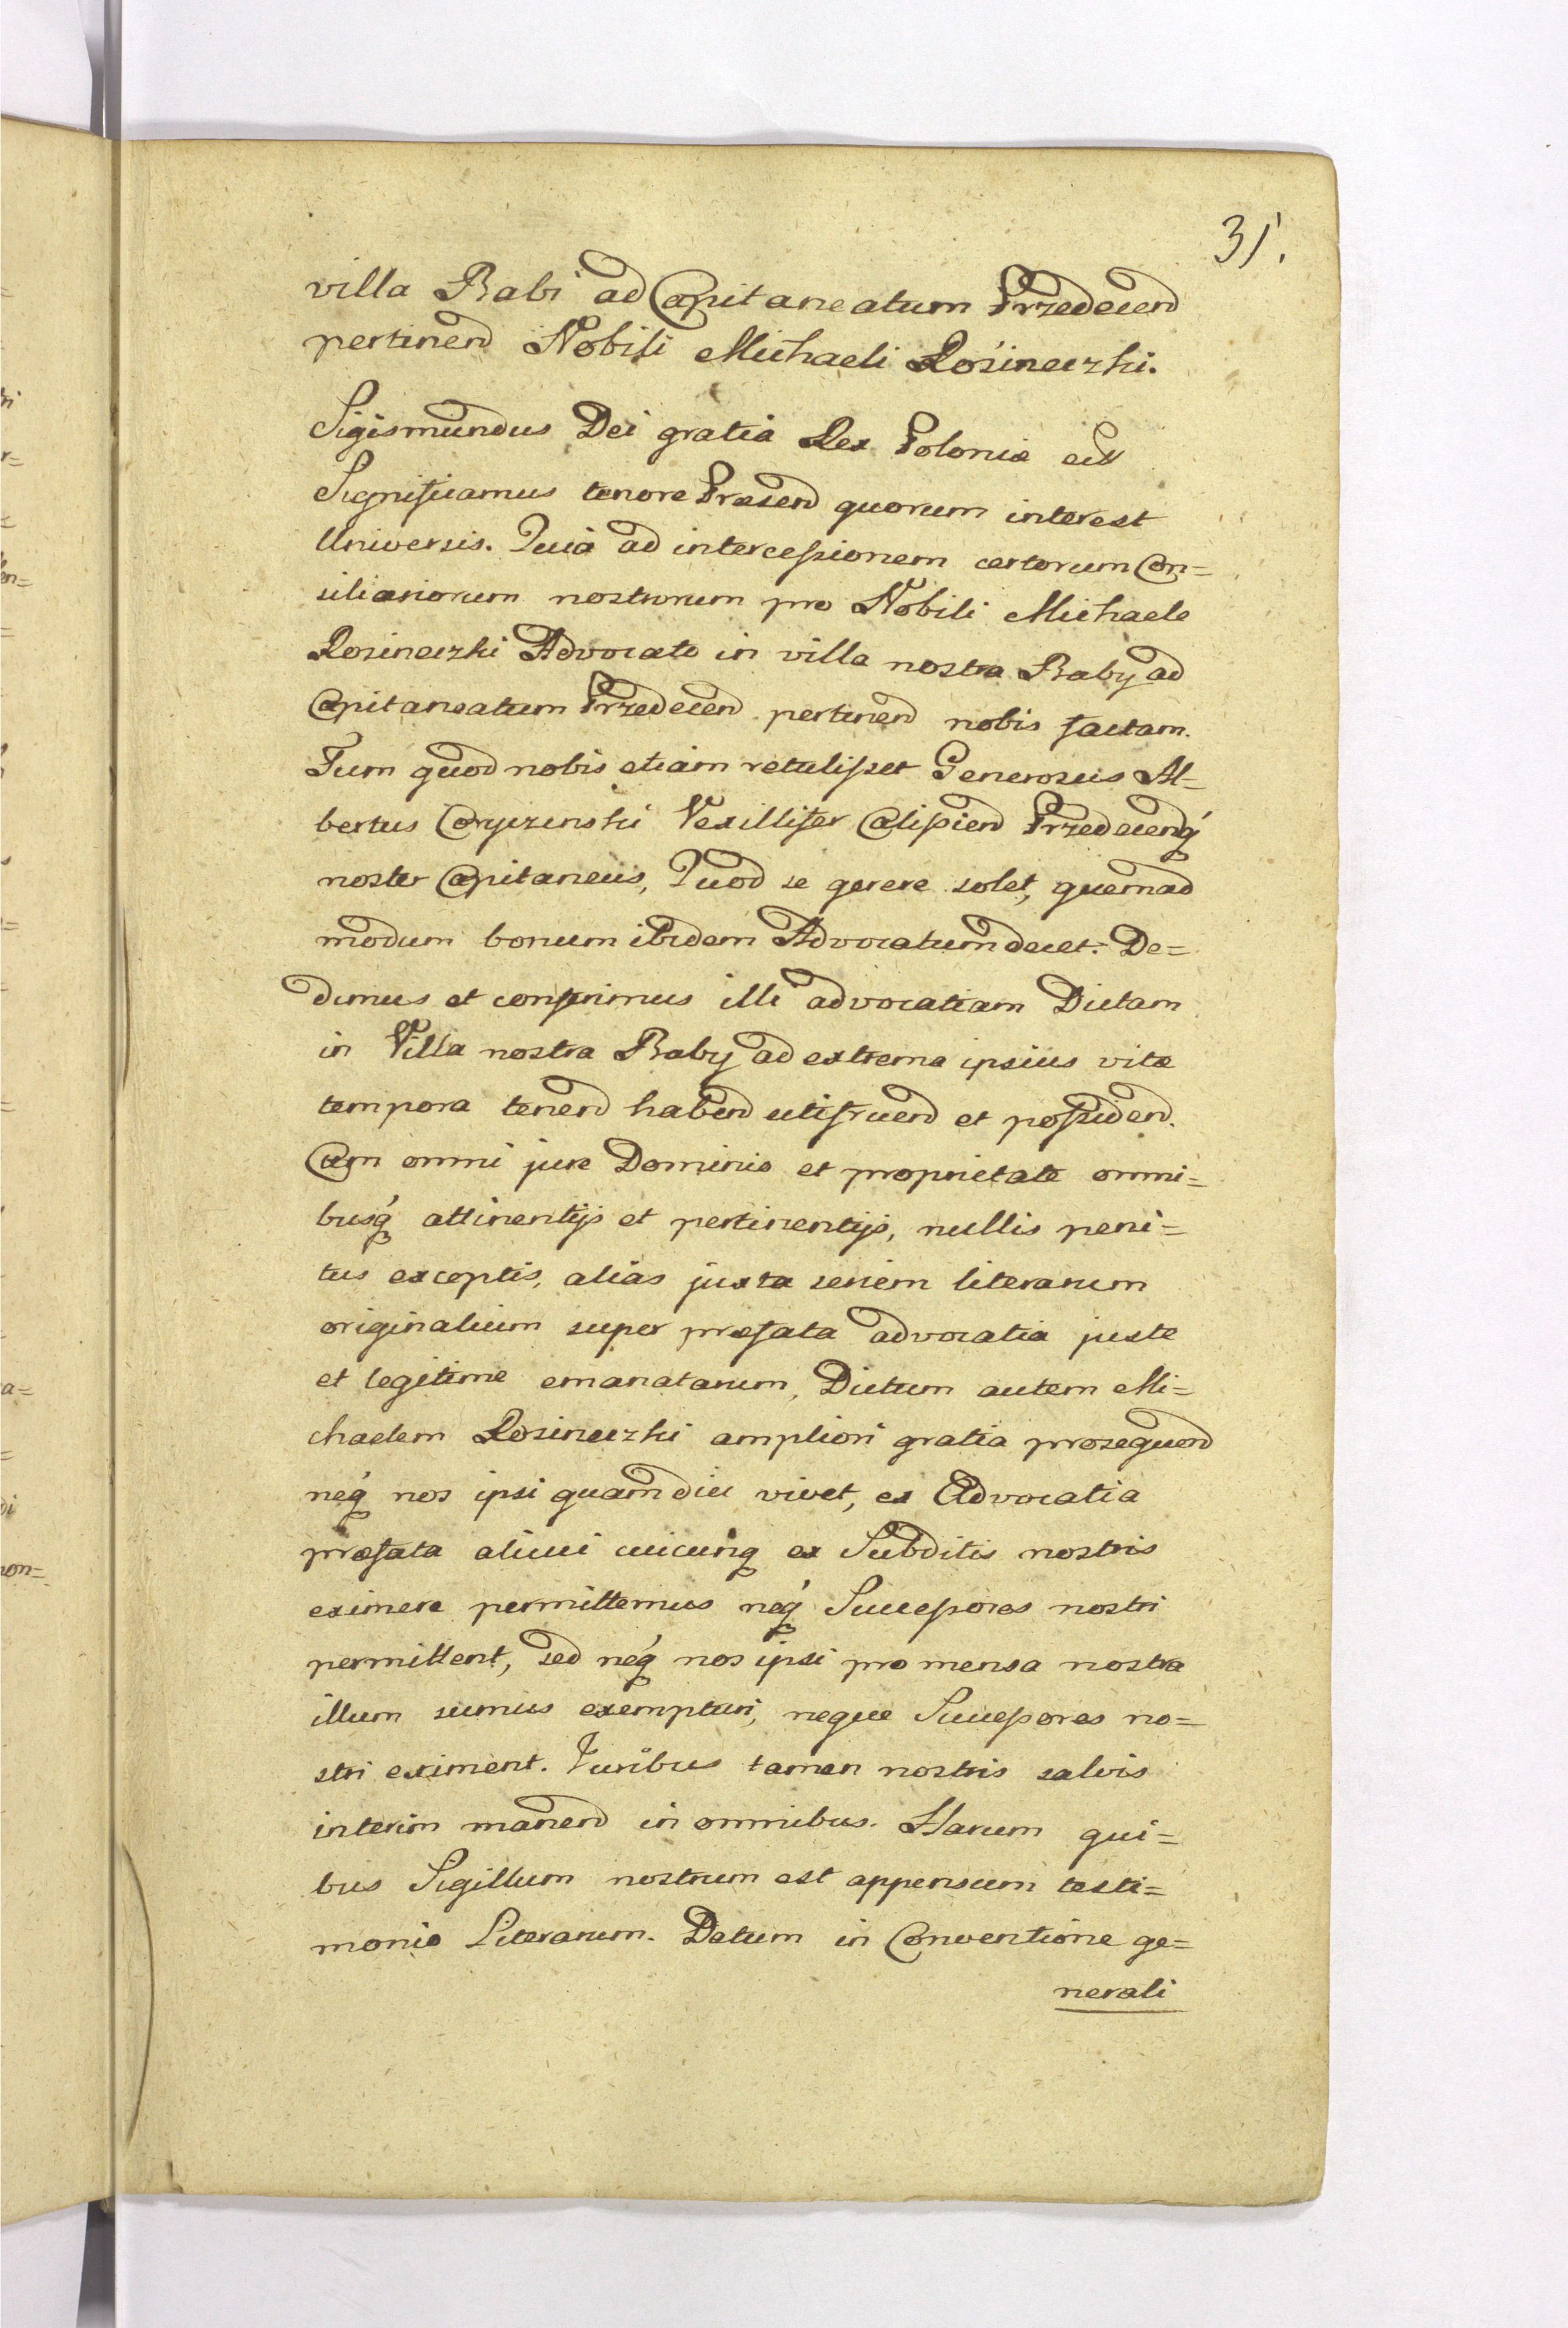 31.
villa Babi ad Capitaneatum Przedecend
pertinend Nobili Michaeli Rosineczki.
Sigismundus Dei gratia Rex Poloniæ ett
Significamus tenore Præsend quorum interest
Universis. Quia ad intercessionem certorum Con=
siliariorum nostrorum pro Nobili Michaele
Rosineczki Advocato in villa nostra Baby ad
Capitaneatum Przedecend pertinend nobis factam.
Tum quod nobis etiam retulisset Generosus Al=
bertus Coryczinski Vexillifer Calisiend Przedecenq́
noster Capitaneus, Quod se gerere solet, quemad
modum bonum ibidem Advocatum decet. De=
dimus et conferimus illi advocatiam Dictam
in Villa nostra Baby ad extrema ipsius vitæ
tempora tenend habend utifruend et possidend.
Cum omni jure Dominio et proprietate omni=
busq́ attinentijs et pertinentijs, nullis peni=
tus exceptis, alias juxta seriem literarum
originalium super præfata advocatia juste
et legitime emanatarum, Dictum autem Mi=
chaelem Rosineczki ampliori gratia prosequend
neq́ nos ipsi quamdiu vivet, ex Advocatia
præfata alicui cuicunq ex Subditis nostris
eximere permittemus neq́ Successores nostri
permittent, sed neq́ nos ipsi pro mensa nostra
illum sumus exempturi, neque Successores no=
stri eximent. Juribus tamen nostris salvis
interim manend in omnibus. Harum qui=
bus Sigillum nostrum est appensum testi=
monio Literarum. Datum in Conventione ge=
nerali